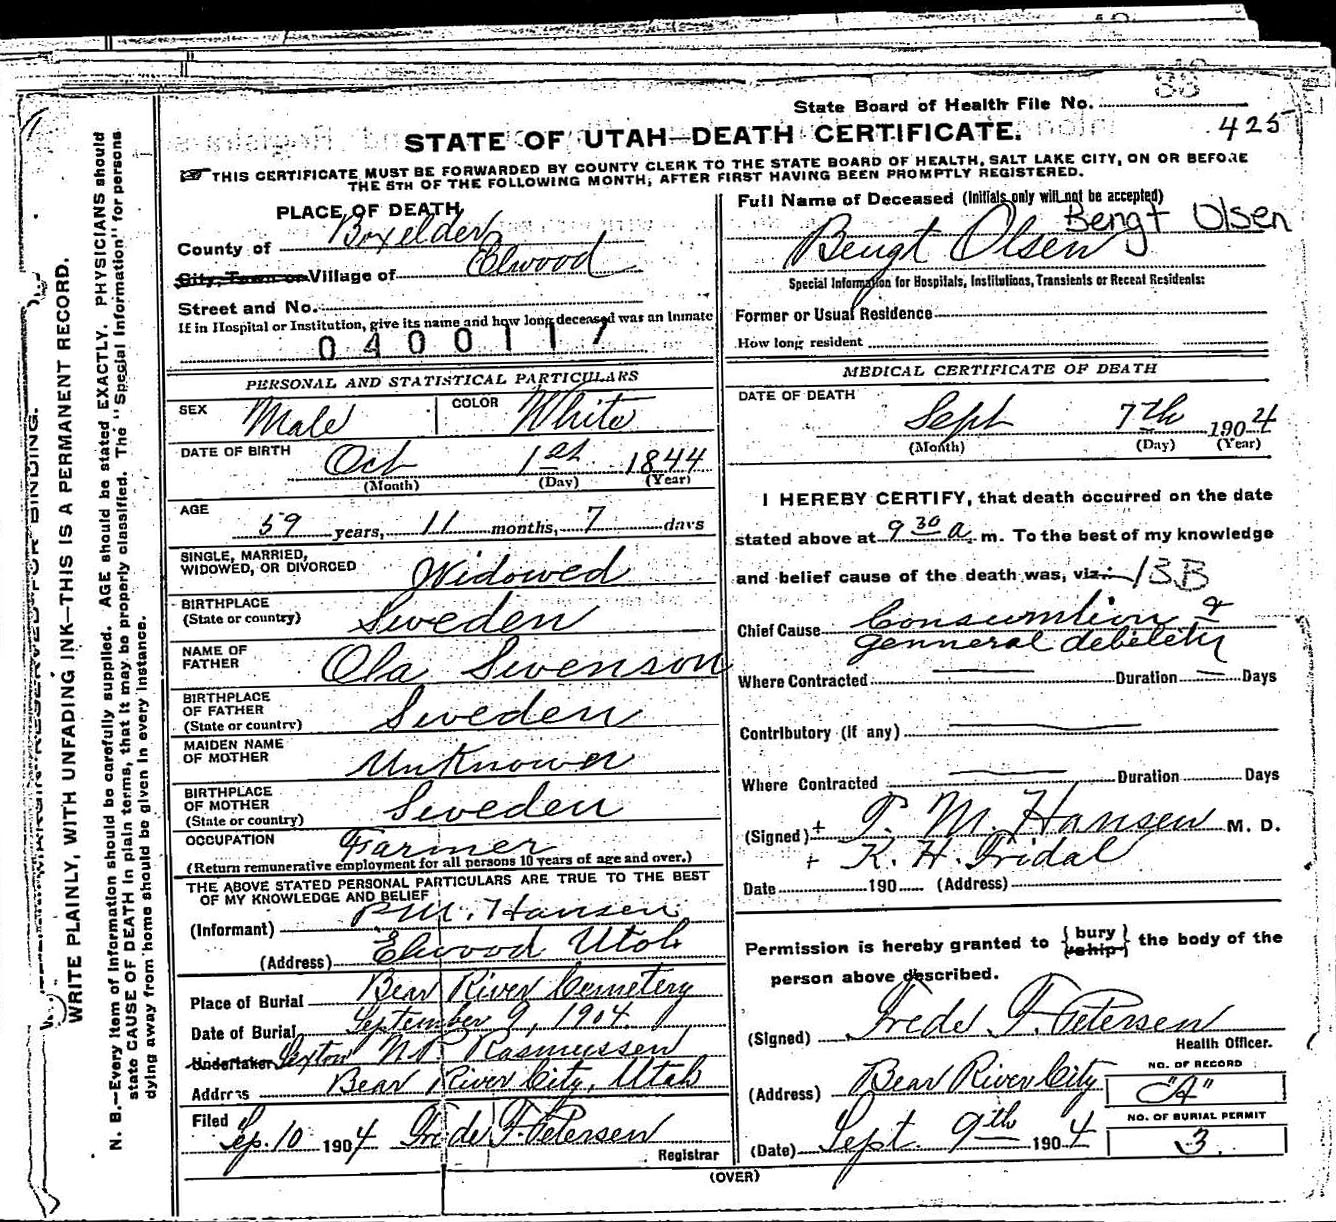 State Board of Health File No. 33
425
STATE OF UTAH—DEATH CERTIFICATE.
THIS CERTIFICATE MUST BE FORWARDED BY COUNTY CLERK TO THE STATE BOARD OF HEALTH, SALT LAKE CITY, ON OR BEFORE
THE 5TH OF THE FOLLOWING MONTH, AFTER FIRST HAVING BEEN PROMPTLY REGISTERED.
PLACE OF DEATH
County of Boxelder
City, Town or Village of Elwood
Street and No.
If in Hospital or Institution, give its name and how long deceased was an Inmate
0400117
PERSONAL AND STATISTICAL PARTICULARS
SEX Male COLOR White
DATE OF BIRTH Oct 1st 1844
(Month) (Day) (Year)
AGE
59 years, 11 months, 7 days
SINGLE, MARRIED,
WIDOWED, OR DIVORCED Widowed
BIRTHPLACE
(State or country) Sweden
NAME OF
FATHER Ola Swenson
BIRTHPLACE
OF FATHER
(State or country) Sweden
MAIDEN NAME
OF MOTHER Unknown
BIRTHPLACE
OF MOTHER
(State or country) Sweden
OCCUPATION Farmer
(Return remunerative employment for all persons 10 years of age and over.)
THE ABOVE STATED PERSONAL PARTICULARS ARE TRUE TO THE BEST
OF MY KNOWLEDGE AND BELIEF
(Informant) P.M. Hansen
(Address) Elwood Utah
Place of Burial Bear River Cemetery
Date of Burial September 9, 1904
Undertaker Sexton N.P. Rasmussen
Address Bear River City, Utah
Filed Sep. 10 1904 Frede F. Petersen
Registrar
Full Name of Deceased (Initials only will not be accepted)
Bengt Olsen
Bengt Olsen
Special Information for Hospitals, Institutions, Transients or Recent Residents:
Former or Usual Residence
How long resident
MEDICAL CERTIFICATE OF DEATH
DATE OF DEATH
Sept 7th 1904
(Month) (Day) (Year)
I HEREBY CERTIFY, that death occurred on the date
stated above at 9 30 a. m. To the best of my knowledge
and belief cause of the death was, viz: 13B
Chief Cause Consumtion &
genneral debelety
Where Contracted Duration Days
Contributory (if any)
Where Contracted Duration Days
(Signed) + P. M. Hansen M. D.
+ K. H. Fridal
Date 190 (Address)
Permission is hereby granted to {bury
ship} the body of the
person above described.
(Signed) Frede F. Petersen
Health Officer.
(Address) Bear River City
NO. OF RECORD
"A"
NO. OF BURIAL PERMIT
3
(Date) Sept. 9th 1904
(OVER)
MARGIN RESERVED FOR BINDING.
WRITE PLAINLY, WITH UNFADING INK—THIS IS A PERMANENT RECORD.
N. B.—Every item of information should be carefully supplied. AGE should be stated EXACTLY. PHYSICIANS should
state CAUSE OF DEATH in plain terms, that it may be properly classified. The "Special Information" for persons
dying away from home should be given in every instance.